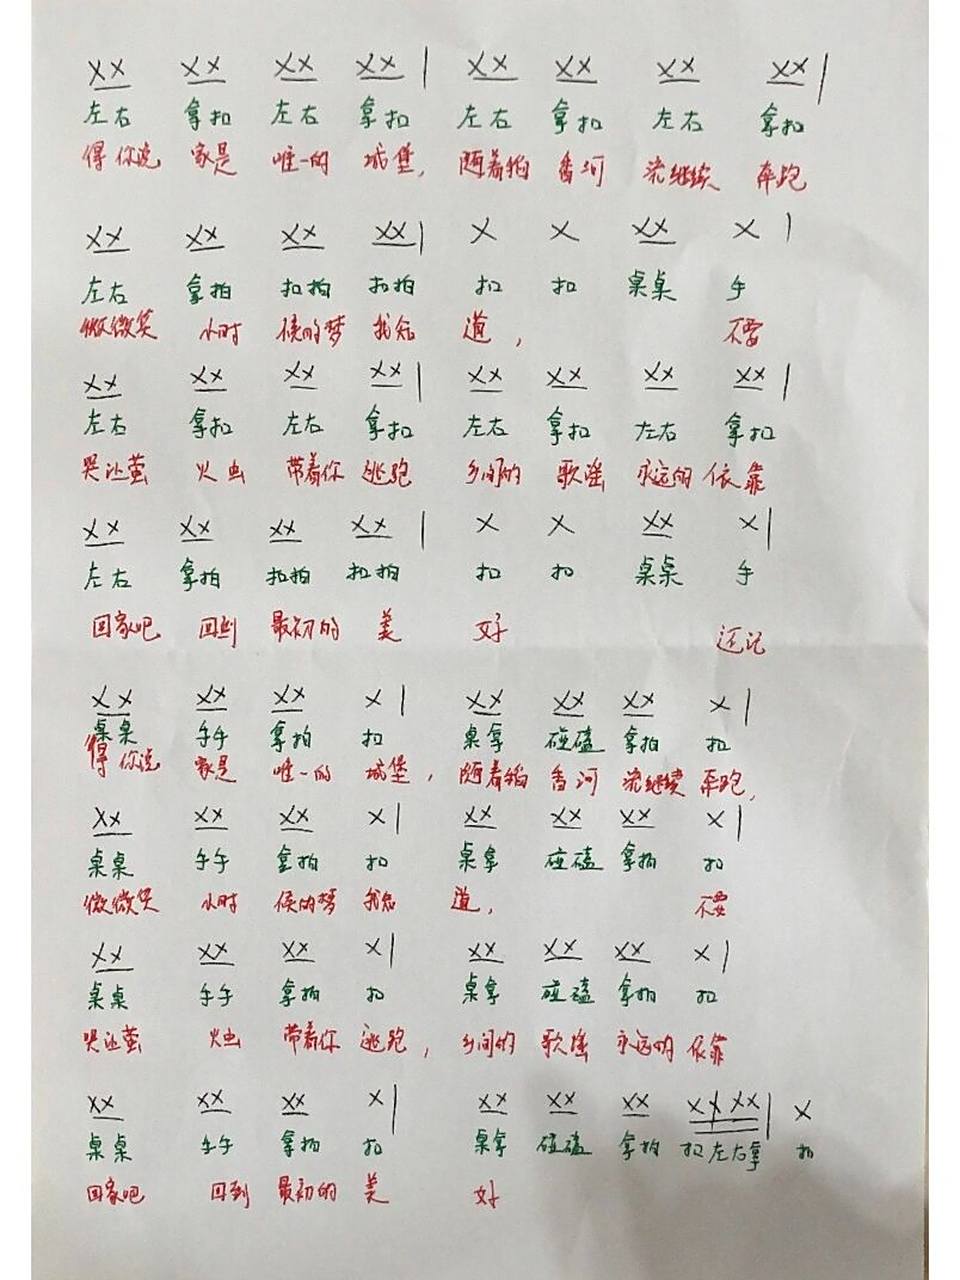 XX XX XX XX | XX XX XX XX |
左右 拿扣 左右 拿扣 左右 拿扣 左右 拿扣
得你说 家是 唯一的 城堡, 随着稻 香河 流继续 奔跑
XX XX XX XX | X X XX X |
左右 拿拍 扣拍 扣拍 扣 扣 桌桌 手
微微笑 小时 侯的梦 我知 道, 不要
XX XX XX XX | XX XX XX XX |
左右 拿扣 左右 拿扣 左右 拿扣 左右 拿扣
哭让萤 火虫 带着你 逃跑 乡间的 歌谣 永远的 依靠
XX XX XX XX | X X XX X |
左右 拿拍 扣拍 扣拍 扣 扣 桌桌 手
回家吧 回到 最初的 美 好 还记
XX XX XX X | XX XX XX X |
桌桌 手手 拿拍 扣 桌拿 碰磕 拿拍 扣
得你说 家是 唯一的 城堡, 随着稻 香河 流继续 奔跑,
XX XX XX X | XX XX XX X |
桌桌 手手 拿拍 扣 桌拿 碰磕 拿拍 扣
微微笑 小时 侯的梦 我知 道, 不要
XX XX XX X | XX XX XX X |
桌桌 手手 拿拍 扣 桌拿 碰磕 拿拍 扣
哭让萤 火虫 带着你 逃跑, 乡间的 歌谣 永远的 依靠
XX XX XX X | XX XX XX XX XX | X
桌桌 手手 拿拍 扣 桌拿 碰磕 拿拍 扣左右拿 扣
回家吧 回到 最初的 美 好